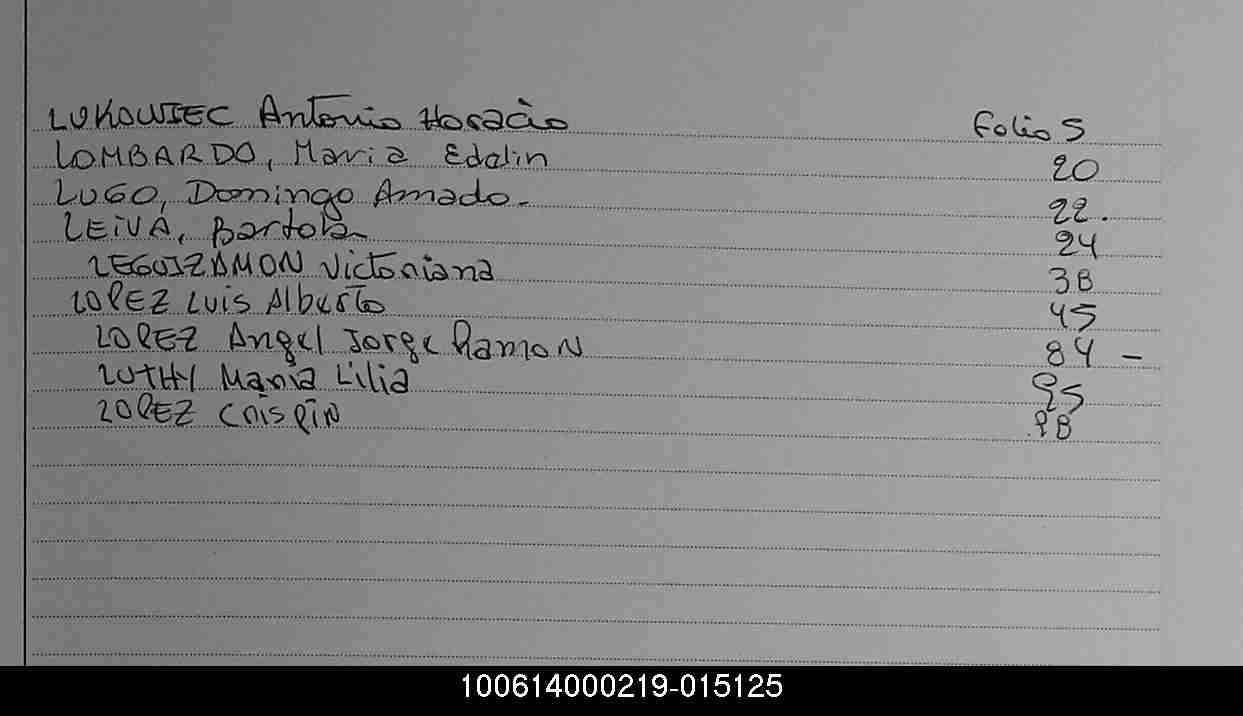 LUKOWIEC Antonio Horacio Folio 5
LOMBARDO, Maria Edalin 20
LUGO, Domingo Amado- 22.
LEIVA, Bartola 24
LEGUIZAMON Victoriana 38
LOPEZ Luis Alberto 45
LOPEZ Angel Jorge Ramon 84 -
LUTHY Maria Lilia 95
LOPEZ Crispin 98
100614000219-015125